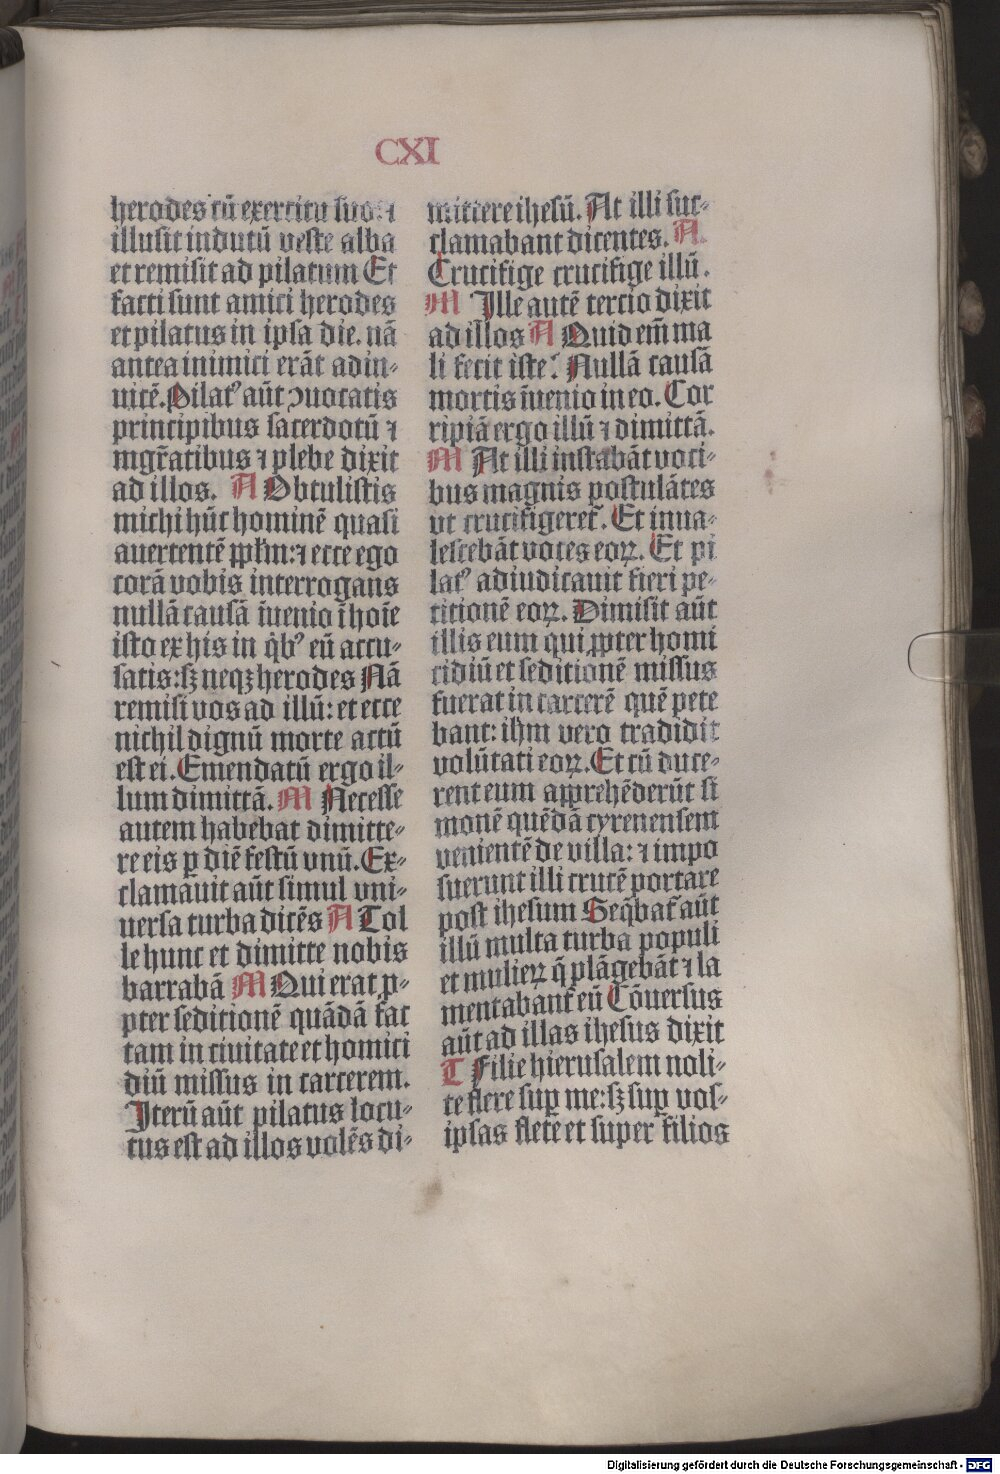 CXI
herodes cū exercitu suo: ⁊
illusit indutū veste alba
et remisit ad pilatum Et
facti sunt amici herodes
et pilatus in ipsa die. nā
antea inimici erāt adin-
uicē. Pilatꝰ aūt ꝯuocatis
principibus sacerdotū ⁊
mgr̄atibus ⁊ plebe dixit
ad illos. A Obtulistis
michi hūc hominē quasi
auertentē ppl̄m: ⁊ ecce ego
corā vobis interrogans
nullā causā īuenio ī hoīe
isto ex his in q̄bꝰ eū accu-
satis: sꝫ neqꝫ herodes Nā
remisi vos ad illū: et ecce
nichil dignū morte actū
est ei. Emendatū ergo il-
lum dimittā. M Necesse
autem habebat dimitte-
re eis ꝑ diē festū vnū. Ex-
clamauit aūt simul vni-
uersa turba dicēs A Tol
le hunc et dimitte nobis
barrabā M Qui erat ꝓ-
pter seditionē quādā fac
tam in ciuitate et homici
diū missus in carcerem.
Iterū aūt pilatus locu-
tus est ad illos volēs di-
mittere ihesū. At illi suc-
clamabant dicentes. A
Crucifige crucifige illū.
M Ille autē tercio dixit
ad illos A Quid em̄ ma
li fecit iste? Nullā causā
mortis īuenio in eo. Cor
ripiā ergo illū ⁊ dimittā.
M At illi instabāt voci-
bus magnis postulātes
vt crucifigeret᷑. Et inua-
lescebāt voces eoꝝ. Et pi
latꝰ adiudicauit fieri pe-
titionē eoꝝ. Dimisit aūt
illis eum qui ꝓpter homi
cidiū et seditionē missus
fuerat in carcerē quē pete
bant: ihm̄ vero tradidit
volūtati eoꝝ. Et cū duce-
rent eum apprehēderūt si
monē quēdā cyrenensem
venientē de villa: ⁊ impo
suerunt illi crucē portare
post ihesum Seq̄bat᷑ aūt
illū multa turba populi
et mulieꝝ q̄ plāgebāt ⁊ la
mentabant᷑ eū Cōuersus
aūt ad illas ihesus dixit
T Filie hierusalem noli-
te flere suꝑ me: sꝫ suꝑ vos-
ipsas flete et super filios
Digitalisierung gefördert durch die Deutsche Forschungsgemeinschaft - DFG